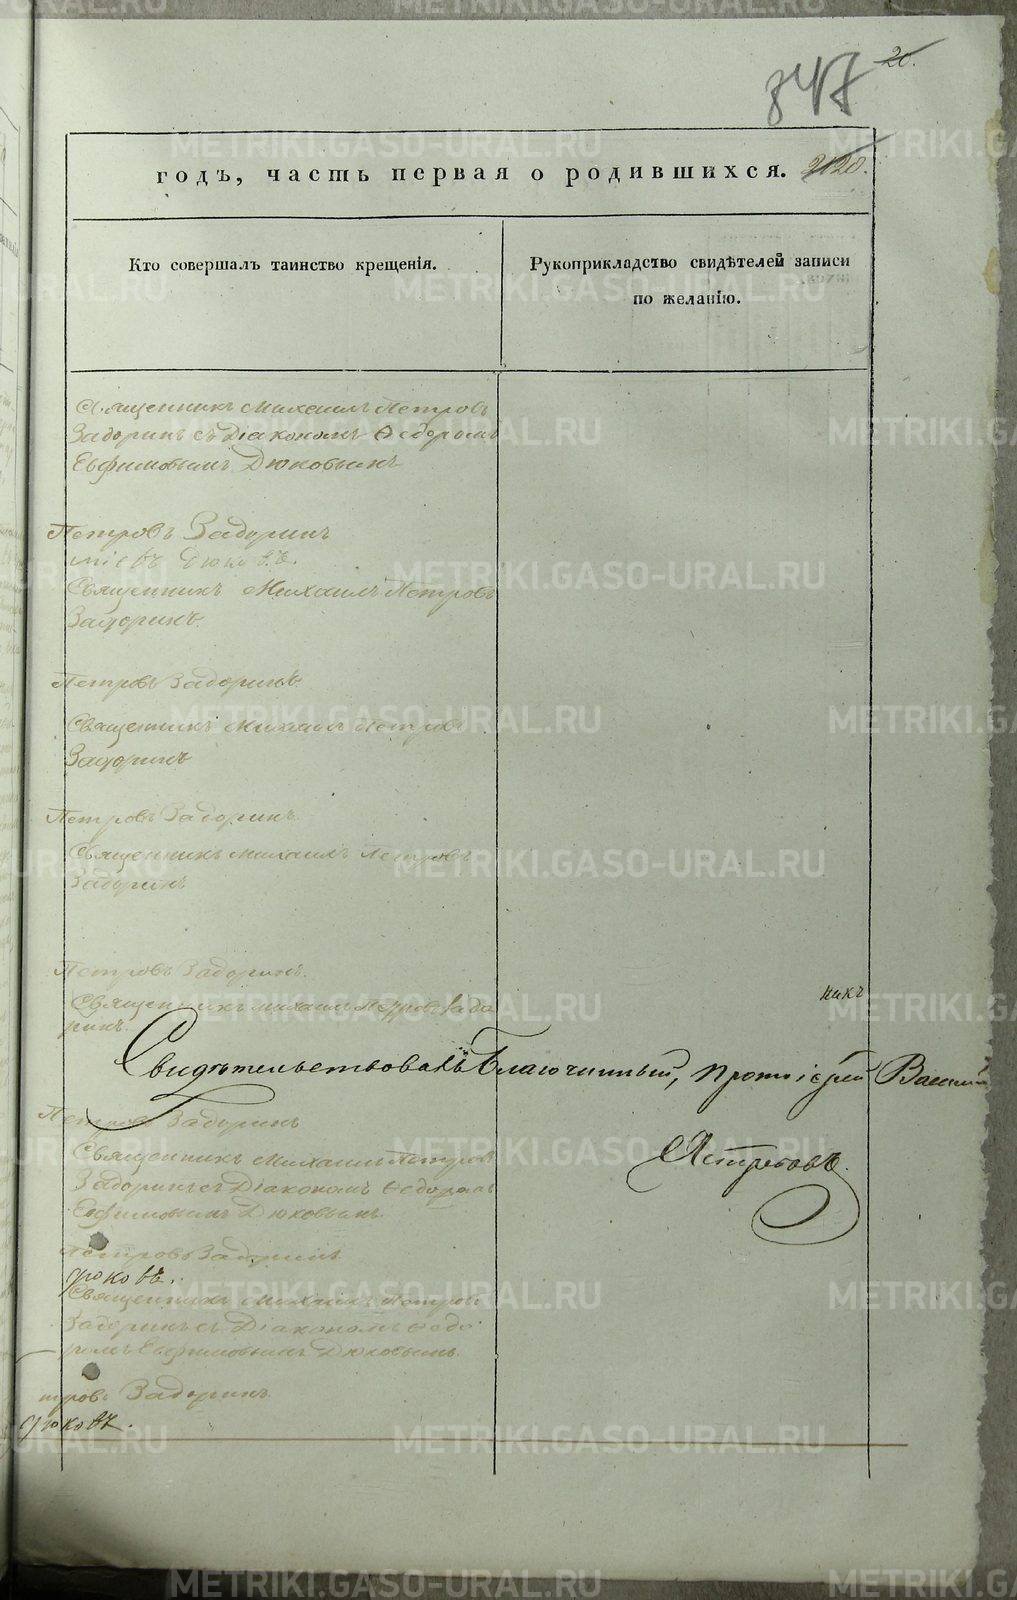 20.
847
годъ, часть первая о родившихся. 20.
Кто совершалъ таинство крещенія.
Рукоприкладство свидѣтелей записи
по желанію.
Священникъ Михаилъ Петровъ
Задоринъ съ Діакономъ Ѳедоромъ
Евфимовымъ Дюковымъ
Петровъ Задоринъ
Дюковъ.
Священникъ Михаилъ Петровъ
Задоринъ.
Петровъ Задоринъ.
Священникъ Михаилъ Петровъ
Задоринъ
Петровъ Задоринъ.
Священникъ Михаилъ Петровъ
Задоринъ
Петровъ Задоринъ.
Священникъ Михаилъ Петровъ Задо
ринъ.
никъ
Свидѣтельствовалъ Благочинный, Протоіерей Василій
Петровъ Задоринъ
Ястребовъ.
Священникъ Михаилъ Петровъ
Задоринъ съ Діакономъ Ѳедоромъ
Евфимовымъ Дюковымъ
Петровъ Задоринъ
Дюковъ.
Священникъ Михаилъ Петровъ
Задоринъ съ Діакономъ Ѳедо
ромъ Евфимовымъ Дюковымъ.
тровъ Задоринъ
Дюковъ.
METRIKI.GASO-URAL.RU